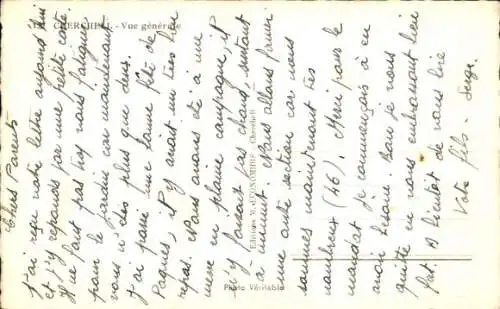 CHERCHELL - Vue générale
Chers Parents
J'ai reçu votre lettre aujourd'hui
et j'y réponds par une petite carte.
Il ne faut pas trop vous fatiguer
pour le jardin car maintenant
vous n'êtes plus que deux.
J'ai passé une bonne fête de
Pâques, il y avait un très bon
repas. Nous avons été à une
messe en pleine campagne, et
il y faisait pas chaud, surtout
à minuit. Nous allons faire
une autre section car nous
sommes maintenant très
nombreux (46). Merci pour le
mandat je commençais à en
avoir besoin. Bon je vous
quitte en vous embrassant bien
fort. A bientôt de vous lire
Votre fils - Serge.
Photo Véritable